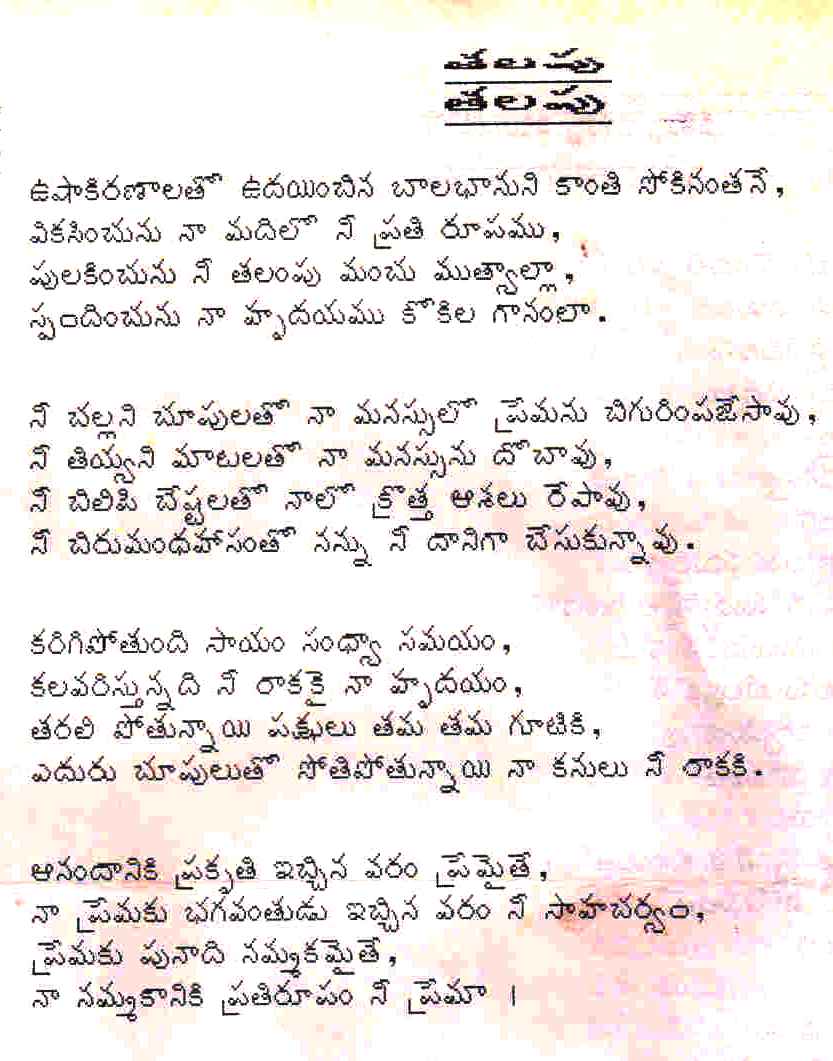 తలపు
తలపు
ఉషాకిరణాలతో ఉదయించిన బాలభానుని కాంతి సోకినంతనే,
వికసించును నా మదిలో నీ ప్రతి రూపము,
పులకించును నీ తలంపు మంచు ముత్యాల్లా,
స్పందించును నా హృదయము కోకిల గానంలా.
నీ చల్లని చూపులతో నా మనస్సులో ప్రేమను చిగురింపజేసావు,
నీ తియ్యని మాటలతో నా మనస్సును దోచావు,
నీ చిలిపి చేష్టలతో నాలో క్రొత్త ఆశలు రేపావు,
నీ చిరుమంధహాసంతో నన్ను నీ దానిగా చేసుకున్నావు.
కరిగిపోతుంది సాయం సంధ్యా సమయం,
కలవరిస్తున్నది నీ రాకకై నా హృదయం,
తరలి పోతున్నాయి పక్షులు తమ తమ గూటికి,
ఎదురు చూపులుతో సోతిపోతున్నాయి నా కనులు నీ రాకకి.
ఆనందానికి ప్రకృతి ఇచ్చిన వరం ప్రేమైతే,
నా ప్రేమకు భగవంతుడు ఇచ్చిన వరం నీ సాహచర్యం,
ప్రేమకు పునాది నమ్మకమైతే,
నా నమ్మకానికి ప్రతిరూపం నీ ప్రేమా |